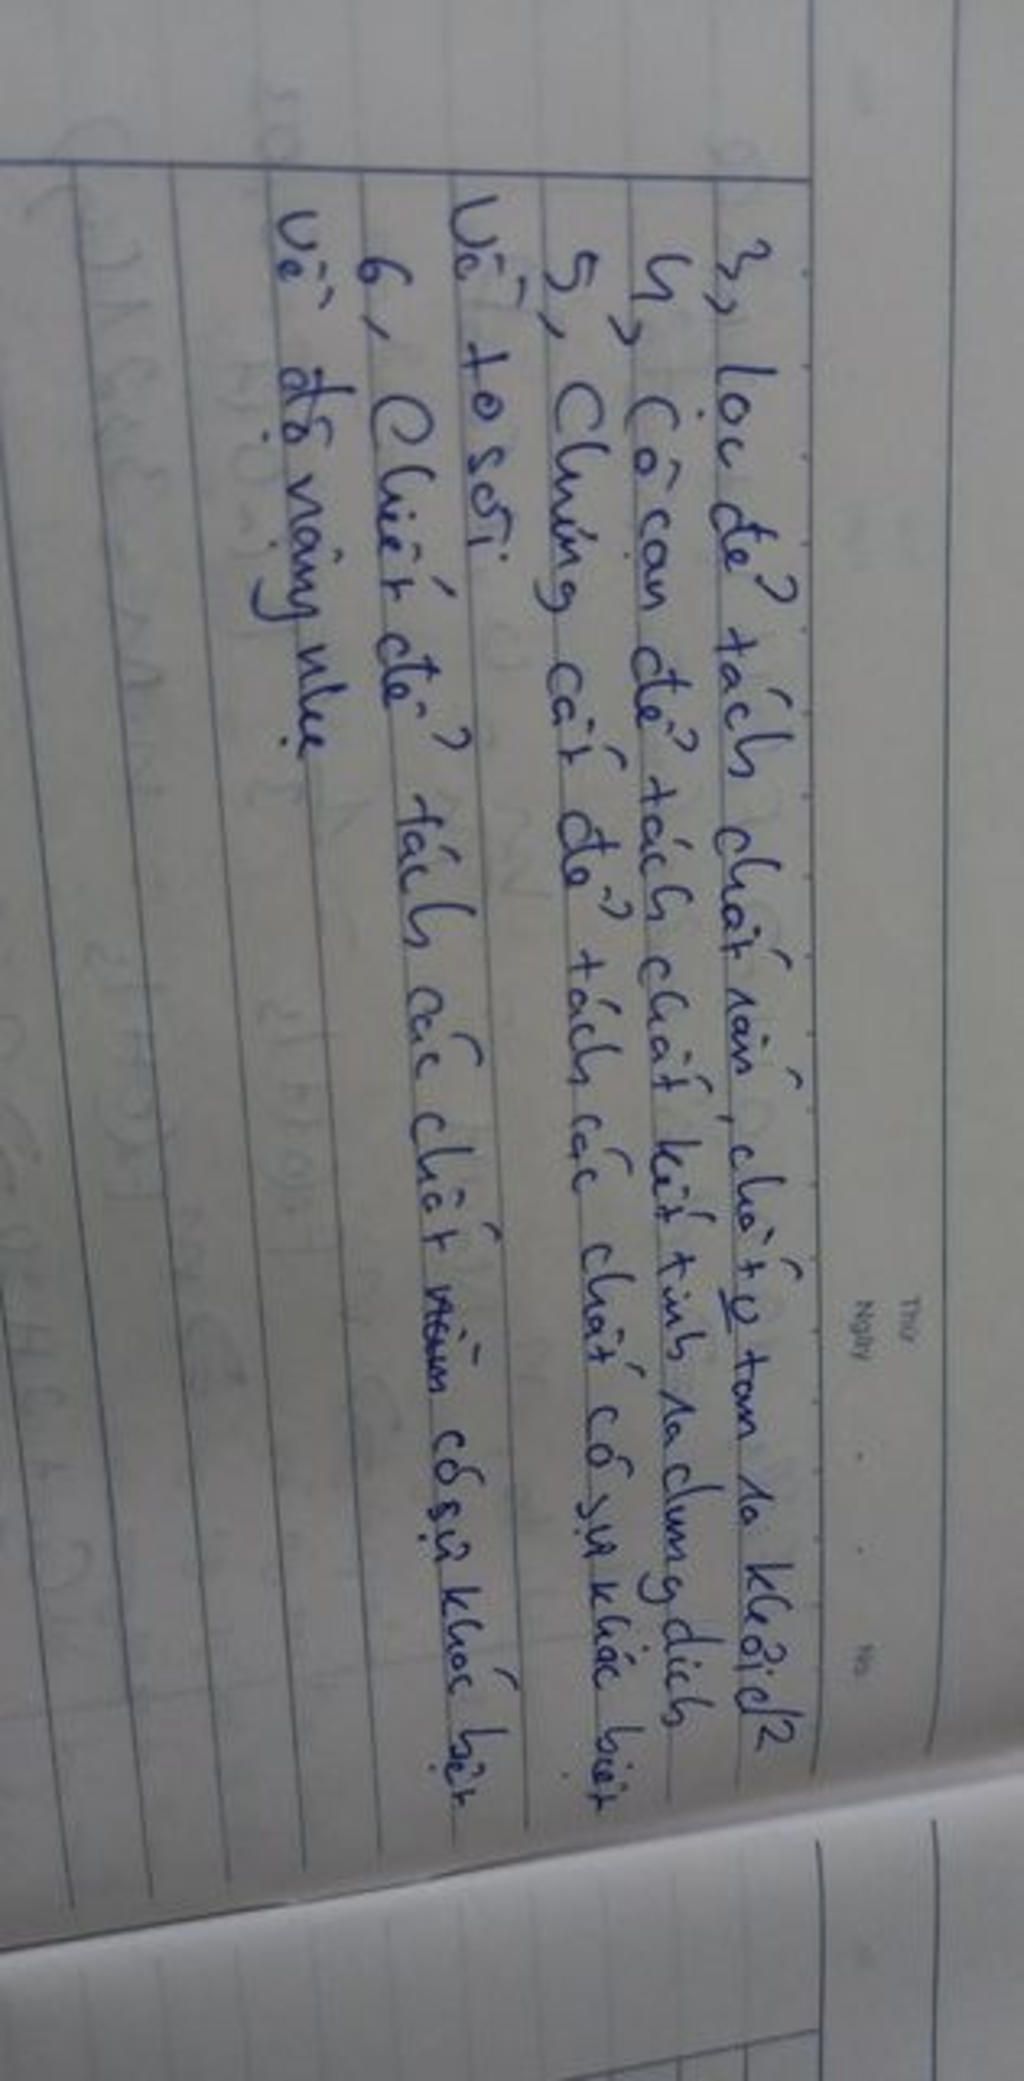 Thứ
Ngày . . No
3, lọc để tách chất rắn, chất ko tan ra khỏi d²
4, Cô cạn để tách chất kết tinh ra dung dịch
5, Chưng cất để tách các chất có sự khác biệt
Về to sôi
6, Chiết để tách các chất có sự khác biệt
về độ nặng nhẹ